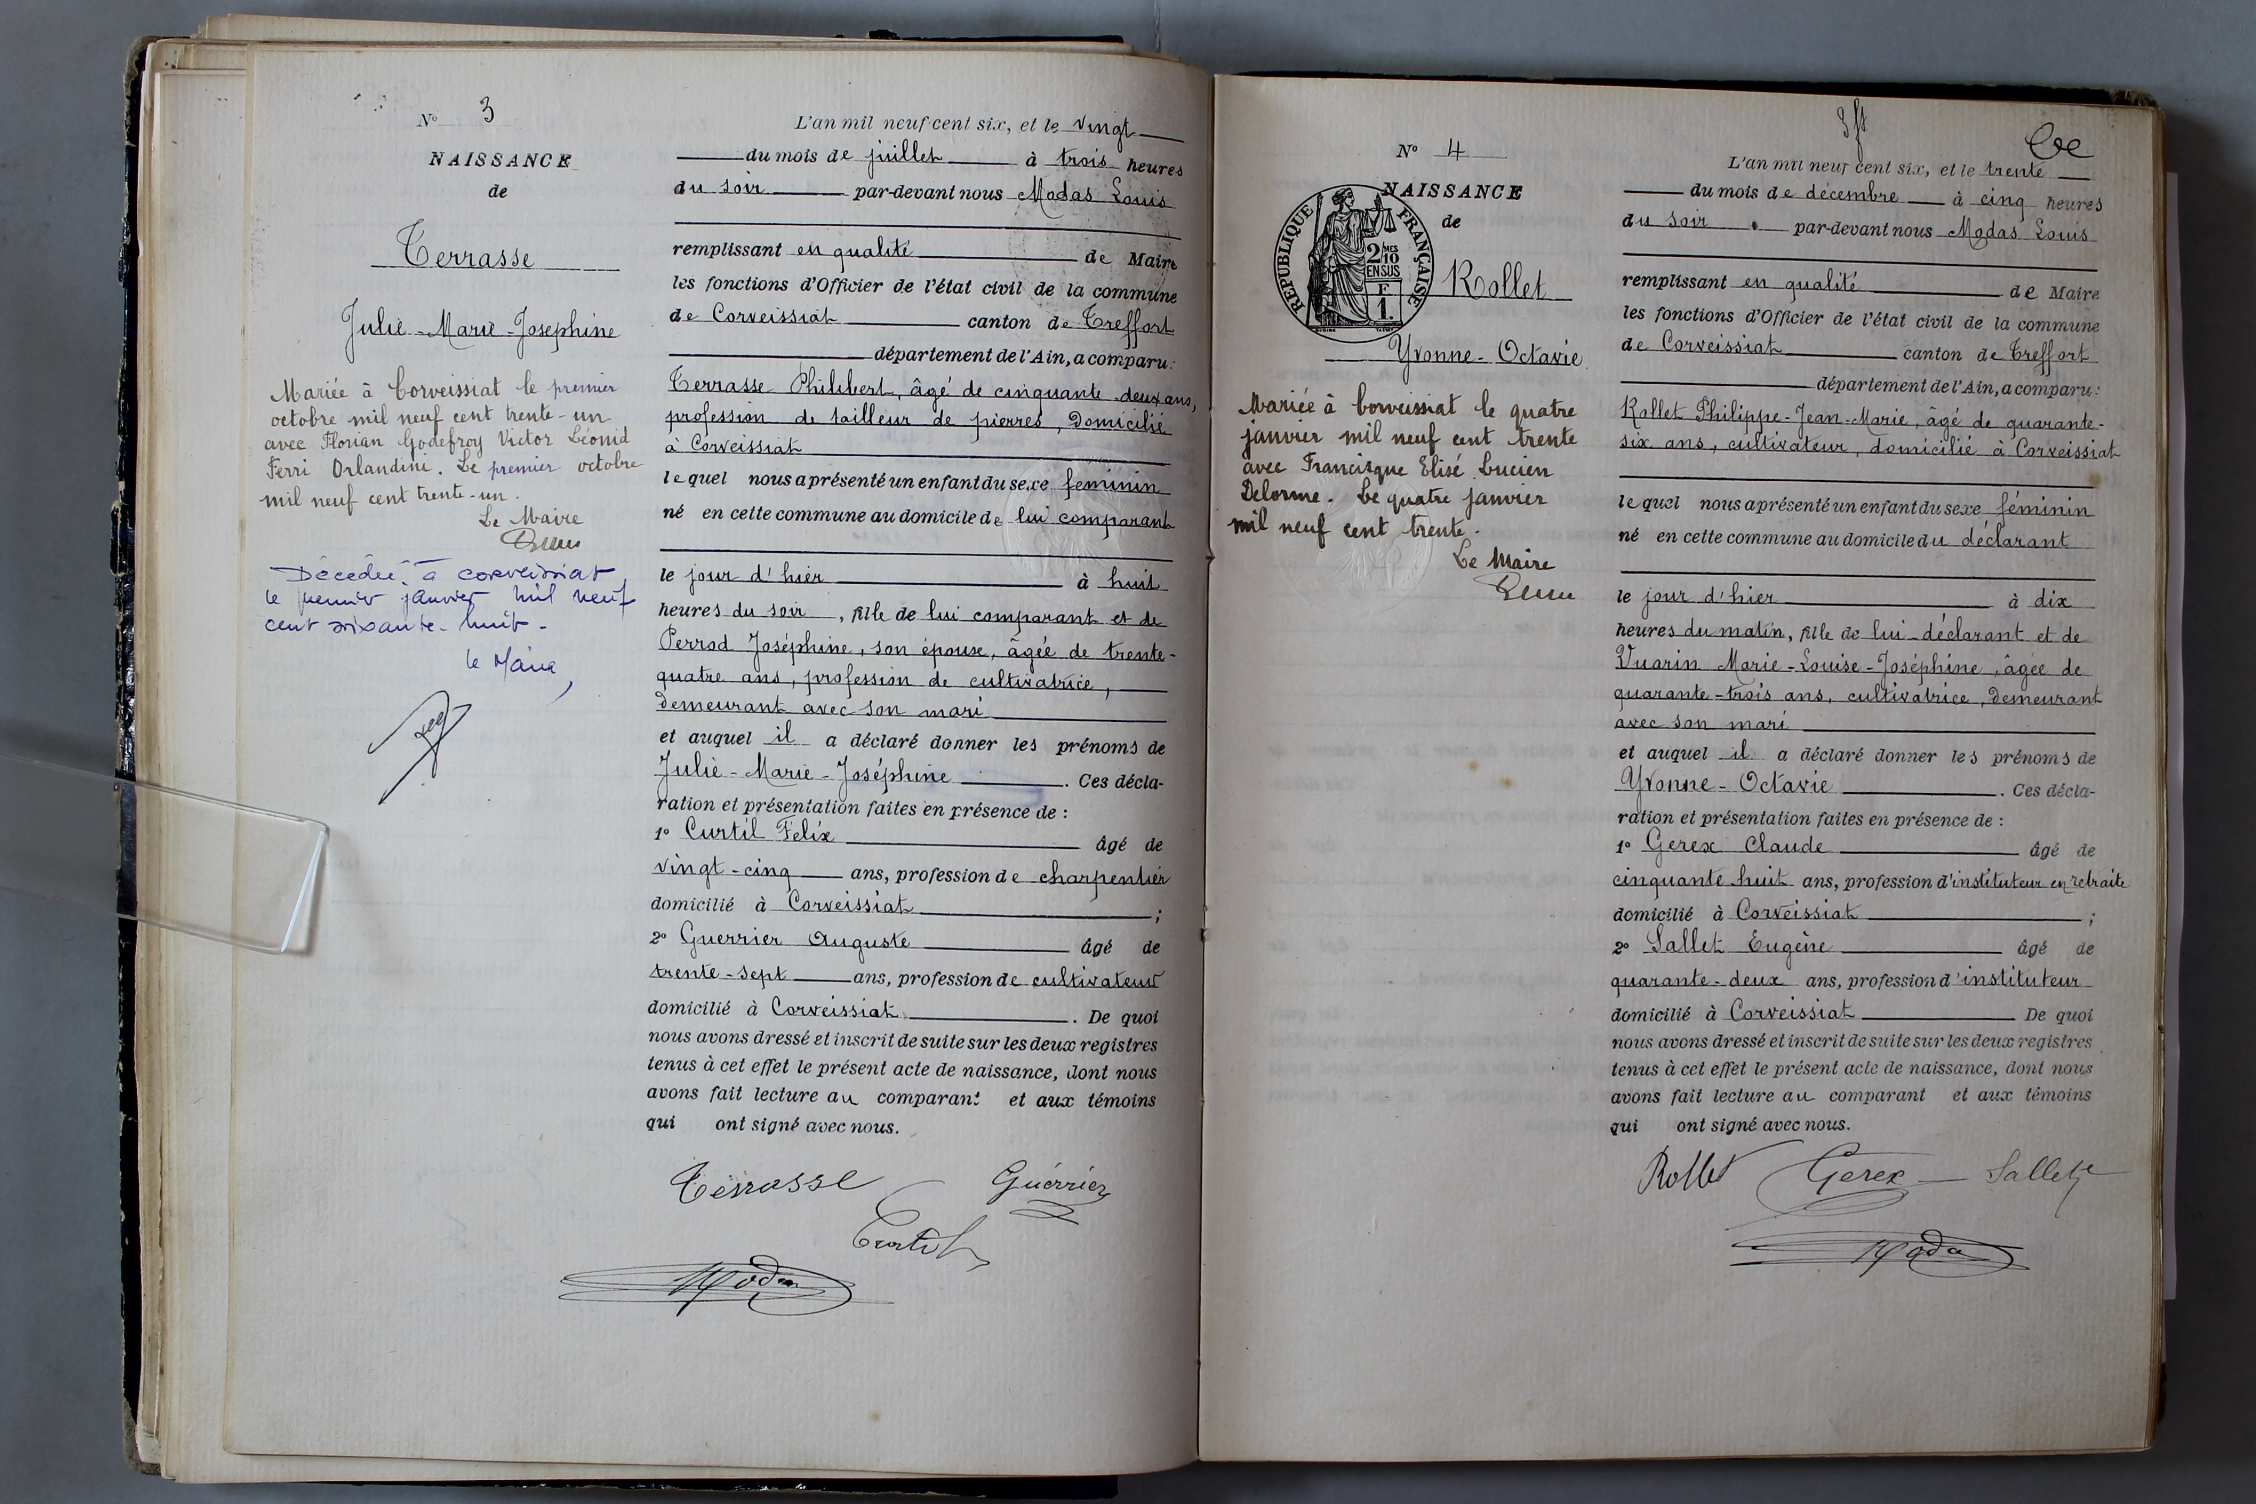 N° 3
NAISSANCE
de
Terrasse
Julie-Marie-Josephine
Mariée à Corveissiat le premier
octobre mil neuf cent trente-un
avec Florian Godefroy Victor Léonid
Ferri Orlandini. Le premier octobre
mil neuf cent trente-un.
Le Maire
Décédée à Corveissiat
le premier janvier mil neuf
cent soixante-huit-
le Maire,
L'an mil neuf cent six, et le vingt
du mois de juillet à trois heures
du soir par-devant nous Modas Louis
remplissant en qualité de Maire
les fonctions d'Officier de l'état civil de la commune
de Corveissiat canton de Treffort
département de l'Ain, a comparu:
Terrasse Philibert, âgé de cinquante-deux ans,
profession de tailleur de pierres, domicilié
à Corveissiat
lequel nous a présenté un enfant du sexe féminin
né en cette commune au domicile de lui comparant
le jour d'hier à huit
heures du soir, fille de lui comparant et de
Perrod Joséphine, son épouse, âgée de trente-
quatre ans, profession de cultivatrice,
demeurant avec son mari
et auquel il a déclaré donner les prénoms de
Julie-Marie-Joséphine. Ces décla-
ration et présentation faites en présence de :
1° Curtil Felix âgé de
vingt-cinq ans, profession de charpentier
domicilié à Corveissiat ;
2° Guerrier Auguste âgé de
trente-sept ans, profession de cultivateur
domicilié à Corveissiat. De quoi
nous avons dressé et inscrit de suite sur les deux registres
tenus à cet effet le présent acte de naissance, dont nous
avons fait lecture au comparant et aux témoins
qui ont signé avec nous.
Terrasse Guérrier
Curtil
Modas
N° 4
NAISSANCE
de
RÉPUBLIQUE FRANÇAISE
2/10 MES
EN SUS
F
1.
Rollet
Yvonne-Octavie
Mariée à Corveissiat le quatre
janvier mil neuf cent trente
avec Francisque Elisé Lucien
Delorme. Le quatre janvier
mil neuf cent trente.
Le Maire
L'an mil neuf cent six, et le trente
du mois de décembre à cinq heures
du soir par-devant nous Modas Louis
remplissant en qualité de Maire
les fonctions d'Officier de l'état civil de la commune
de Corveissiat canton de Treffort
département de l'Ain, a comparu:
Rollet Philippe-Jean-Marie, âgé de quarante-
six ans, cultivateur, domicilié à Corveissiat
lequel nous a présenté un enfant du sexe féminin
né en cette commune au domicile du déclarant
le jour d'hier à dix
heures du matin, fille de lui-déclarant et de
Vuarin Marie-Louise-Joséphine, âgée de
quarante-trois ans, cultivatrice, demeurant
avec son mari
et auquel il a déclaré donner les prénoms de
Yvonne-Octavie. Ces décla-
ration et présentation faites en présence de :
1° Gerex Claude âgé de
cinquante huit ans, profession d'instituteur en retraite
domicilié à Corveissiat ;
2° Sallet Eugène âgé de
quarante-deux ans, profession d'instituteur
domicilié à Corveissiat De quoi
nous avons dressé et inscrit de suite sur les deux registres
tenus à cet effet le présent acte de naissance, dont nous
avons fait lecture au comparant et aux témoins
qui ont signé avec nous.
Rollet Gerex Sallet
Modas